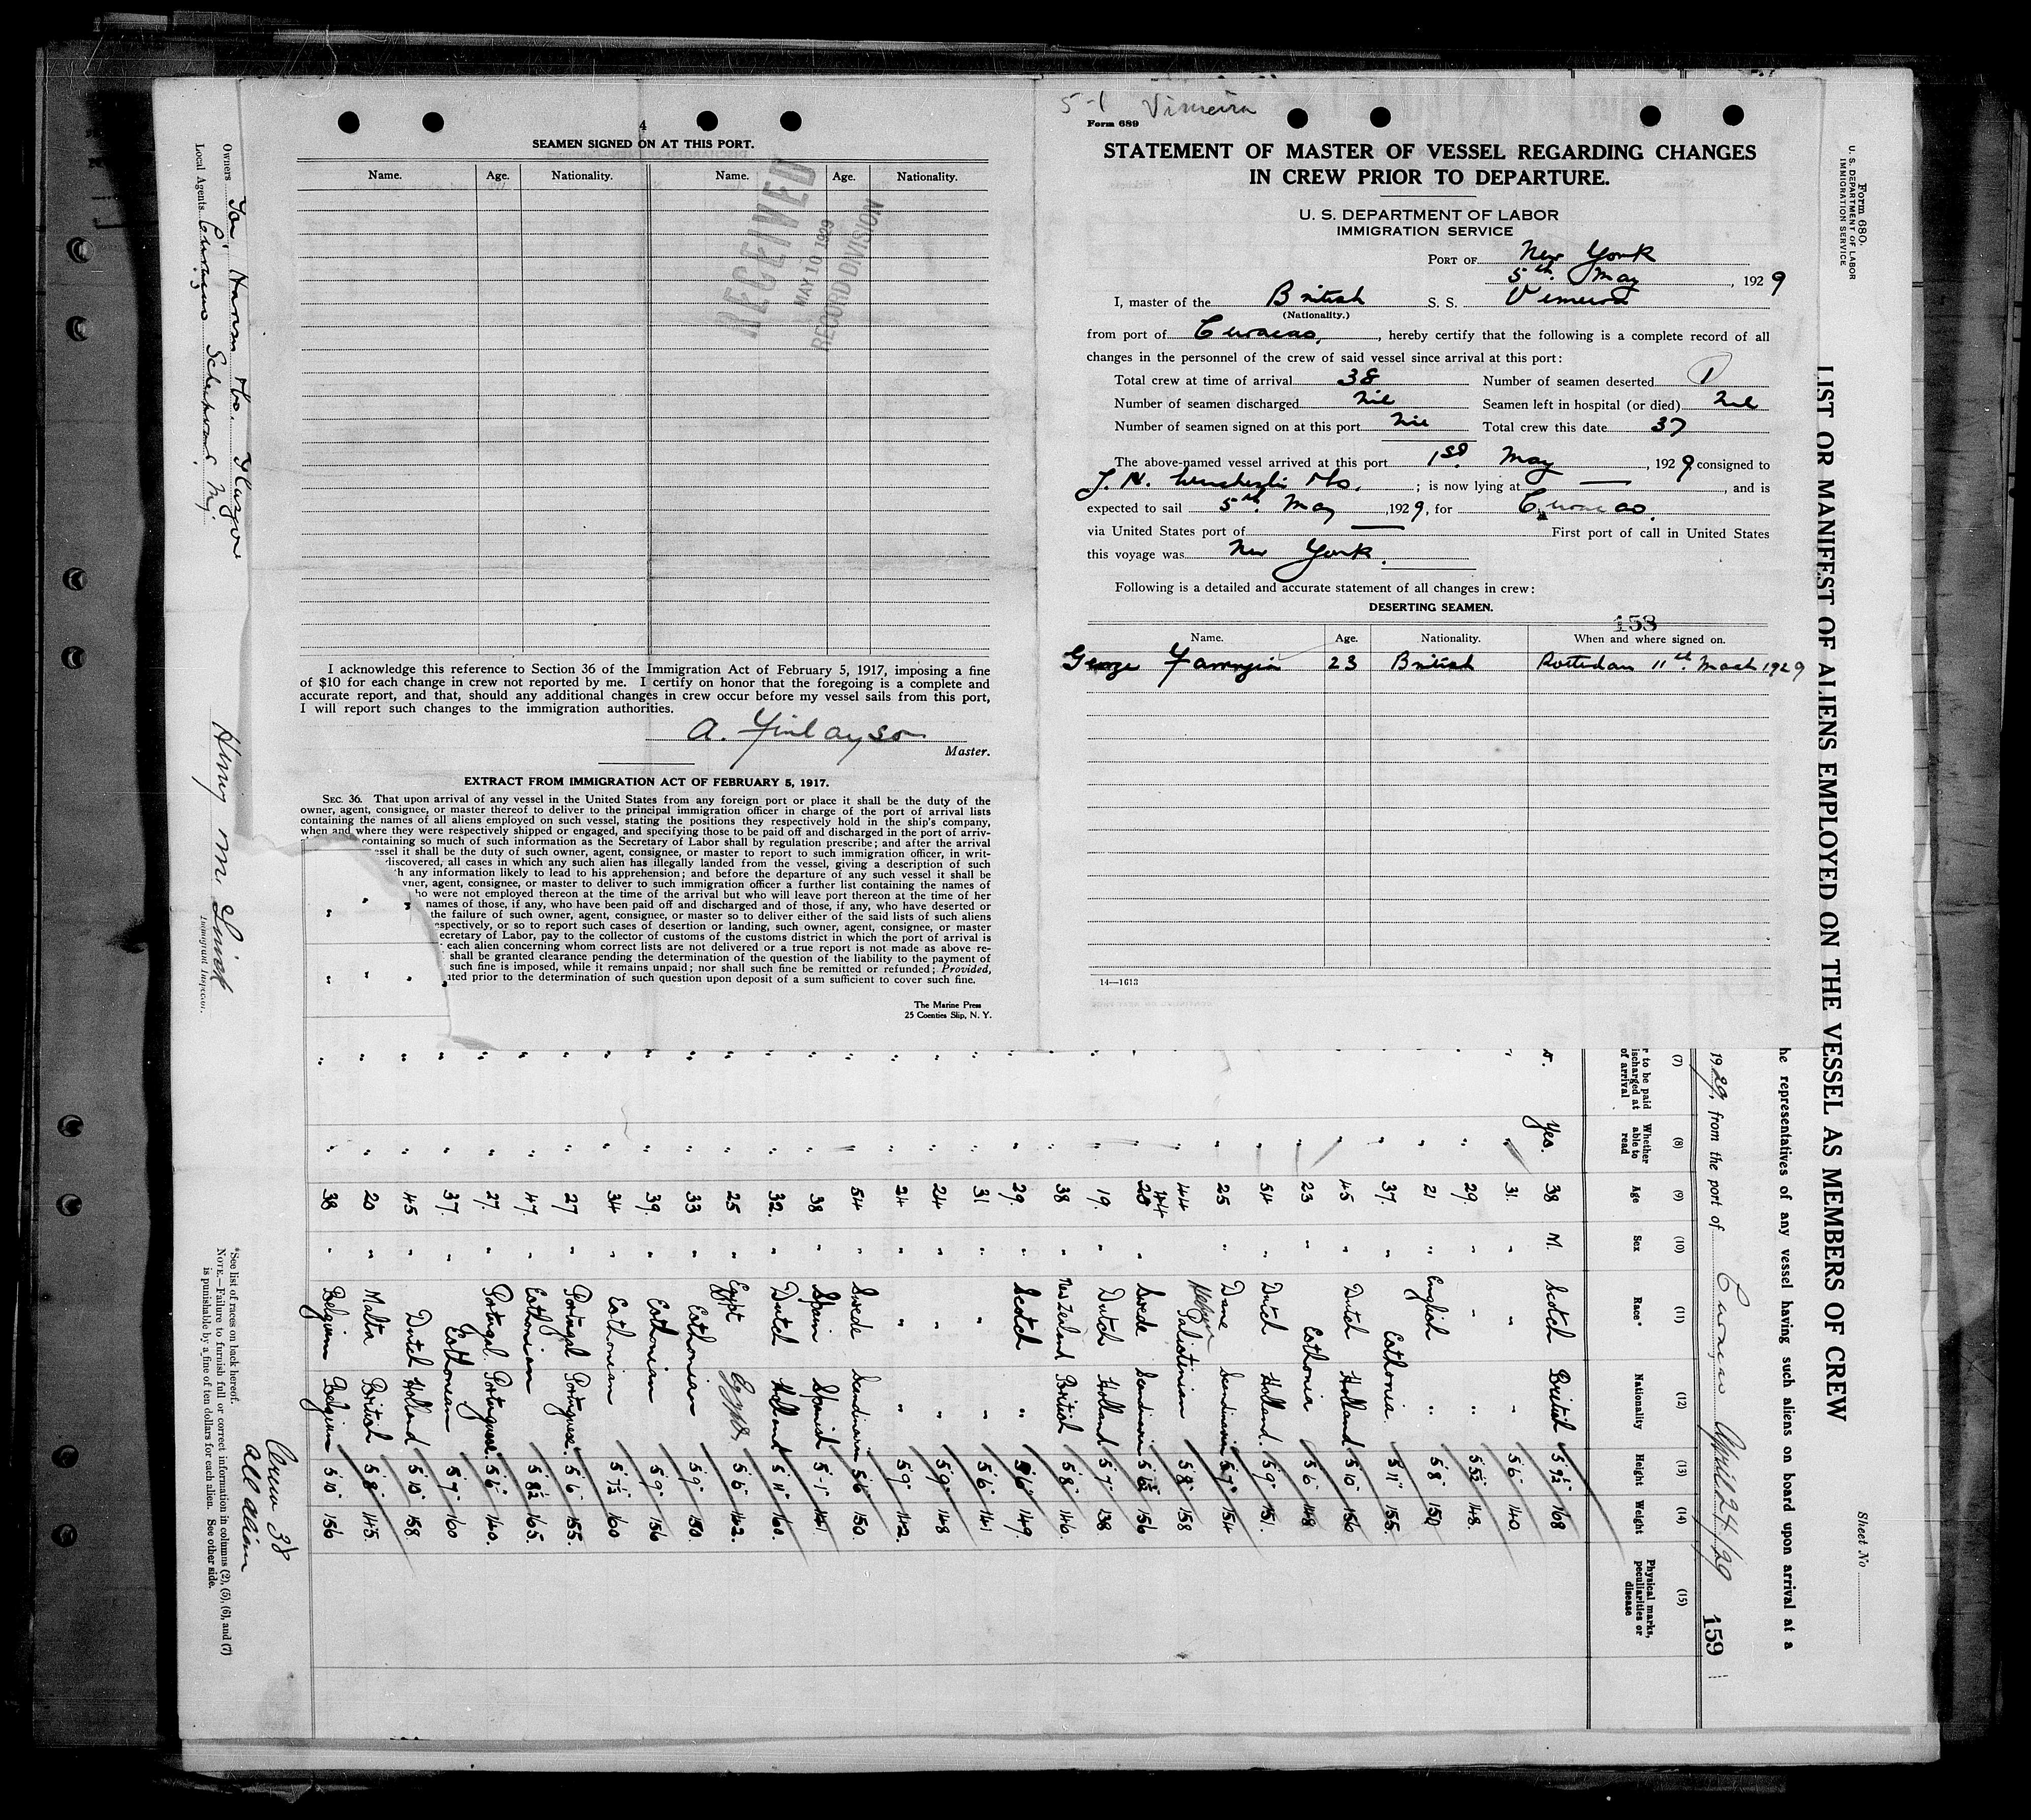 4
SEAMEN SIGNED ON AT THIS PORT.
Name. Age. Nationality. Name. Age. Nationality.
RECEIVED
MAY 10 1929
RECORD DIVISION
I acknowledge this reference to Section 36 of the Immigration Act of February 5, 1917, imposing a fine
of $10 for each change in crew not reported by me. I certify on honor that the foregoing is a complete and
accurate report, and that, should any additional changes in crew occur before my vessel sails from this port,
I will report such changes to the immigration authorities.
A. Finlayson
Master.
EXTRACT FROM IMMIGRATION ACT OF FEBRUARY 5, 1917.
SEC. 36. That upon arrival of any vessel in the United States from any foreign port or place it shall be the duty of the
owner, agent, consignee, or master thereof to deliver to the principal immigration officer in charge of the port of arrival lists
containing the names of all aliens employed on such vessel, stating the positions they respectively hold in the ship's company,
when and where they were respectively shipped or engaged, and specifying those to be paid off and discharged in the port of arriv-
containing so much of such information as the Secretary of Labor shall by regulation prescribe; and after the arrival
essel it shall be the duty of such owner, agent, consignee, or master to report to such immigration officer, in writ-
discovered, all cases in which any such alien has illegally landed from the vessel, giving a description of such
h any information likely to lead to his apprehension; and before the departure of any such vessel it shall be
wner, agent, consignee, or master to deliver to such immigration officer a further list containing the names of
ho were not employed thereon at the time of the arrival but who will leave port thereon at the time of her
names of those, if any, who have been paid off and discharged and of those, if any, who have deserted or
the failure of such owner, agent, consignee, or master so to deliver either of the said lists of such aliens
espectively, or so to report such cases of desertion or landing, such owner, agent, consignee, or master
ecretary of Labor, pay to the collector of customs of the customs district in which the port of arrival is
each alien concerning whom correct lists are not delivered or a true report is not made as above re-
shall be granted clearance pending the determination of the question of the liability to the payment of
such fine is imposed, while it remains unpaid; nor shall such fine be remitted or refunded; Provided,
ted prior to the determination of such question upon deposit of a sum sufficient to cover such fine.
The Marine Press
25 Coenties Slip, N. Y.
5-1 Vimeira
Form 689
STATEMENT OF MASTER OF VESSEL REGARDING CHANGES
IN CREW PRIOR TO DEPARTURE.
U. S. DEPARTMENT OF LABOR
IMMIGRATION SERVICE
PORT OF New York
5th May, 1929
I, master of the British S. S. Vimeira
(Nationality.)
from port of Curacao, hereby certify that the following is a complete record of all
changes in the personnel of the crew of said vessel since arrival at this port:
Total crew at time of arrival 38 Number of seamen deserted 1
Number of seamen discharged Nil Seamen left in hospital (or died) Nil
Number of seamen signed on at this port Nil Total crew this date 37
The above-named vessel arrived at this port 1st May, 1929 consigned to
J. H. ; is now lying at , and is
expected to sail 5th May, 1929, for Curacao.
via United States port of First port of call in United States
this voyage was New York.
Following is a detailed and accurate statement of all changes in crew:
DESERTING SEAMEN.
158
Name. Age. Nationality. When and where signed on.
George 23 British Rotterdam 11th March 1929
14—1613
Form 680.
U. S. DEPARTMENT OF LABOR
IMMIGRATION SERVICE
Sheet No.
LIST OR MANIFEST OF ALIENS EMPLOYED ON THE VESSEL AS MEMBERS OF CREW
he representatives of any vessel having such aliens on board upon arrival at a
1929, from the port of Curacao April 24/29 159
(7) (8) (9) (10) (11) (12) (13) (14) (15)
r to be paid ischarged at of arrival Whether able to read Age Sex Race* Nationality Height Weight Physical marks, peculiarities or disease
Yes. 38 M. Scotch British 5 9½ 168
" " 31. " " " 5 6 140.
" " 29. " " " 5 5½ 148.
" " 21 " English " 5 8 150
" " 37. " Esthonia 5 11 155.
" " 45 " Dutch Holland 5 10 156
" " 23 " Esthonia 5 6 148
" " 54 " Dutch Holland. 5 9 151.
" " 25 " Dane Scandinavian 5 7 154
" " 44 Palestinian 5 8 158
" " 44 " Swede Scandinavian 156
" " 19. " Dutch Holland 5 7 138
" " 38 " New Zealand British 5 8 146.
" " 29. " Scotch " 5 6 149.
" " 31 " " " 5 6 141
" " 24 " " " 5 9 148
" " 24 " " " 5 9 142.
" " 54 " Swede Scandinavian 5 6 150.
" " 38 " Spain Spanish 5 1 141
" " 32. " Dutch Holland 5 11 160.
" " 25 " Egypt Egypt. 5 6 142.
" " 33 " Esthonian 5 9 150
" " 39. " Esthonian 5 9 156
" " 34 " Esthonian 5 7½ 160
" " 27 " Portugal Portuguese. 5 6 155.
" " 47. " Esthonian 5 8½ 165.
" " 27. " Portugal. Portuguese. 5 6 140.
" " 37. " Esthonian 5 7 160
" " 45 " Dutch Holland 5 10 158.
" " 20 " Malta British 5 8 145.
" " 38 " Belgium Belgium 5 10 156
Crew 38
all alien
*See list of races on back hereof.
NOTE.—Failure to furnish full or correct information in columns (2), (5), (6), and (7)
is punishable by a fine of ten dollars for each alien. See other side.
Owners Glasgow
Local Agents
Henry M.
Immigrant Inspector.